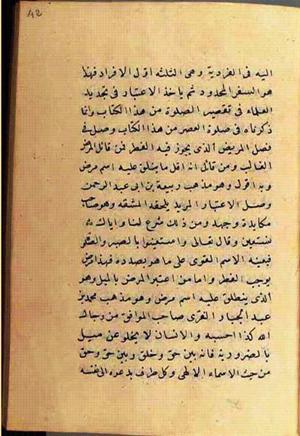 42
اليه فى الفردية وهى الثلثة اقول الافراد فهذا
هو السفر المحدود ثم ياخذ الاعتبار فى تحديد
العلماء فى تقصير الصلوة من هذا الكتاب وانما
ذكرناه فى صلوة العصر من هذا الكتاب وصل فى
فصل المريض الذى يجوز فيه الفطر فمن قائل المرض
الغالب ومن قائل انه اقل ما ينطلق عليه اسم مرض
وبه اقول وهو مذهب ربيعة بن ابى عبد الرحمن
وصل الاعتبار المريد يلحقه المشقة وهو صاحب
مكابدة وجهد ومن ذلك شرع لنا واياك
نستعين وقال تعالى واستعينوا بالصبر والصلوة
فيعينه الاسم القوى على ما هو بصدده فهذا مرض
يوجب الفطر واما من اعتبر المرض بالميل وهو
الذى ينطلق عليه اسم مرض وهو مذهب محمد بن
عبد الجبار النفرى صاحب المواقف من رجال
الله كذا احسبه والانسان لا يخلو عن ميل
بالضرورية فانه بين حق وخلق وبين حق وحق
من حيث الاسماء الالهى وكل طرف يدعوه الى نفسه